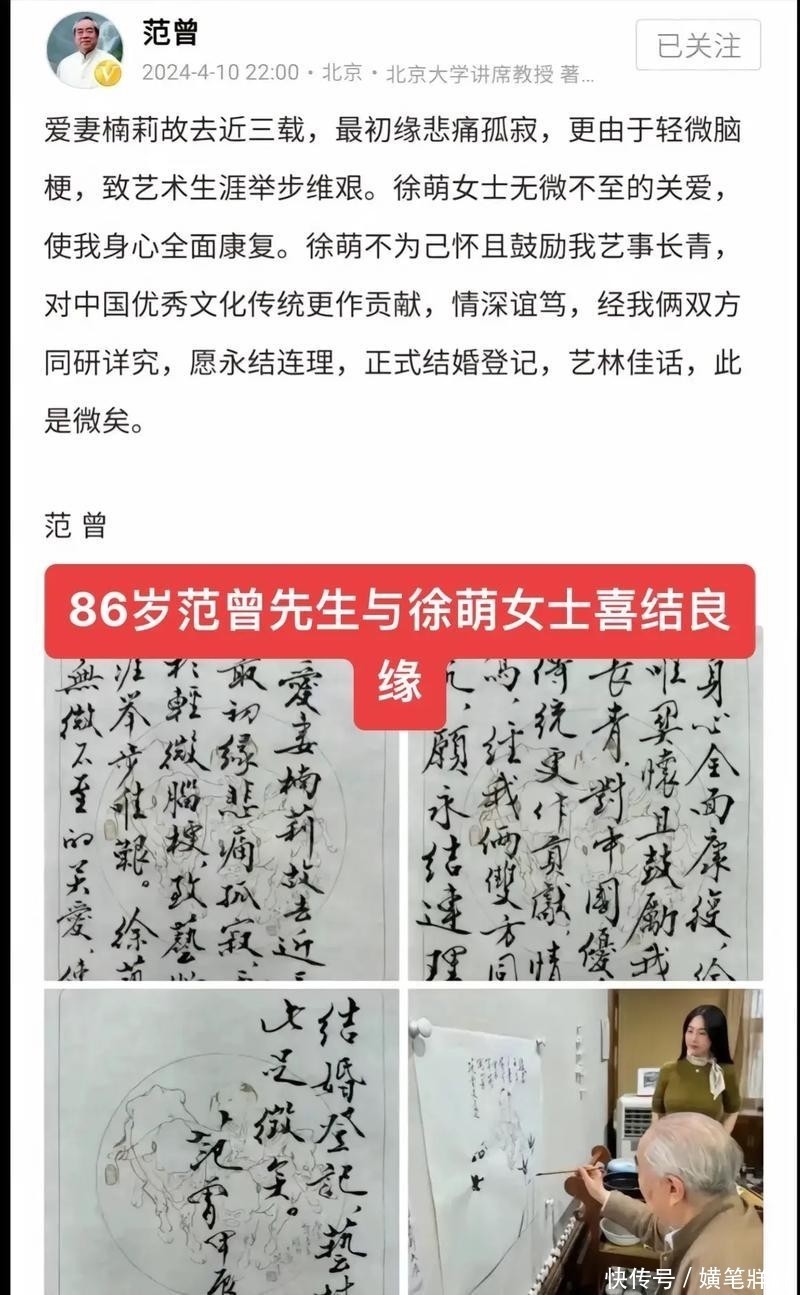 范曾
已关注
2024-4-10 22:00 · 北京 · 北京大学讲席教授 著...
爱妻楠莉故去近三载，最初缘悲痛孤寂，更由于轻微脑
梗，致艺术生涯举步维艰。徐萌女士无微不至的关爱，
使我身心全面康复。徐萌不为己怀且鼓励我艺事长青，
对中国优秀文化传统更作贡献，情深谊笃，经我俩双方
同研详究，愿永结连理，正式结婚登记，艺林佳话，此
是微矣。
范 曾
86岁范曾先生与徐萌女士喜结良
缘
愛妻楠莉故去近
最初缘悲痛孤寂
於輕微腦梗，致藝
涯举步唯艱。徐萌
無微不至的关愛，使
身心全面康復，徐
懷且鼓勵我
长青，對中國優
傳統更作貢獻，情
篤，經我俩雙方同
願永结連理
结婚登記，藝林
此是微矣。
范曾甲辰
快传号 / 横笔牂